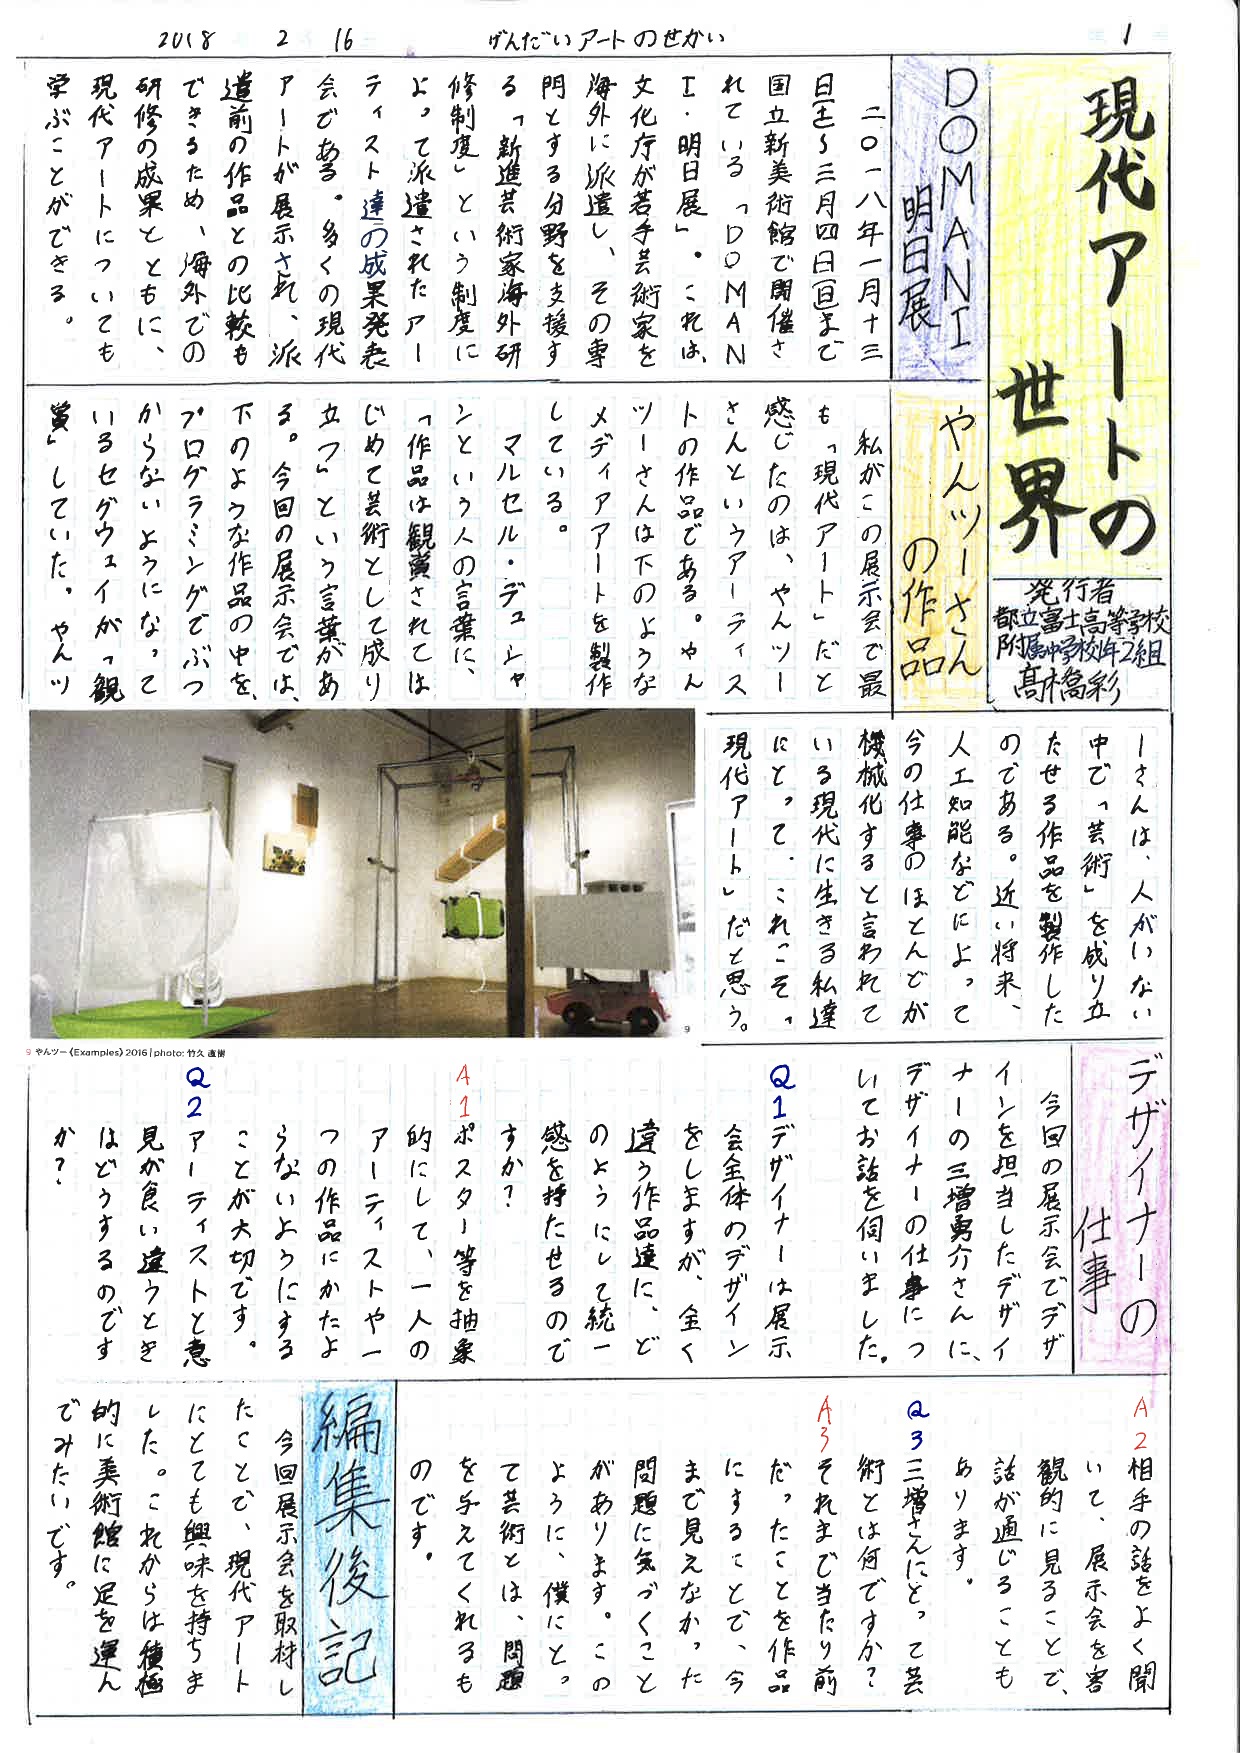 2018 2 16 げんだいアートのせかい 1
現代アートの
世界
発行者
都立富士高等学校
附属中学校1年2組
髙橋彩
DOMANI
明日展
二〇一八年一月十三
日(土)〜三月四日(日)まで
国立新美術館で開催さ
れている「DOMAN
I・明日展」。これは、
文化庁が若手芸術家を
海外に派遣し、その専
門とする分野を支援す
る「新進芸術家海外研
修制度」という制度に
よって派遣されたアー
ティスト達の成果発表
会である。多くの現代
アートが展示され、派
遣前の作品との比較も
できるため、海外での
研修の成果とともに、
現代アートについても
学ぶことができる。
やんツーさん
の作品
私がこの展示会で最
も「現代アート」だと
感じたのは、やんツー
さんというアーティス
トの作品である。やん
ツーさんは下のような
メディアアートを製作
している。
マルセル・デュシャ
ンという人の言葉に、
「作品は観賞されては
じめて芸術として成り
立つ」という言葉があ
る。今回の展示会では、
下のような作品の中を、
プログラミングでぶつ
からないようになって
いるセグウェイが「観
賞」していた。やんツ
ーさんは、人がいない
中で「芸術」を成り立
たせる作品を製作した
のである。近い将来、
人工知能などによって
今の仕事のほとんどが
機械化すると言われて
いる現代に生きる私達
にとって、これこそ「
現代アート」だと思う。
9
9 やんツー《Examples》2016 | photo: 竹久 直樹
デザイナーの
仕事
今回の展示会でデザ
インを担当したデザイ
ナーの三増勇介さんに、
デザイナーの仕事につ
いてお話を伺いました。
Q1デザイナーは展示
会全体のデザイン
をしますが、全く
違う作品達に、ど
のようにして統一
感を持たせるので
すか?
A1ポスター等を抽象
的にして、一人の
アーティストや一
つの作品にかたよ
らないようにする
ことが大切です。
Q2アーティストと意
見が食い違うとき
はどうするのです
か?
A2相手の話をよく聞
いて、展示会を客
観的に見ることで、
話が通じることも
あります。
Q3三増さんにとって芸
術とは何ですか?
A3それまで当たり前
だったことを作品
にすることで、今
まで見えなかった
問題に気づくこと
があります。この
ように、僕にとっ
て芸術とは、問題
を与えてくれるも
のです。
編集後記
今回展示会を取材し
たことで、現代アート
にとても興味を持ちま
した。これからは積極
的に美術館に足を運ん
でみたいです。